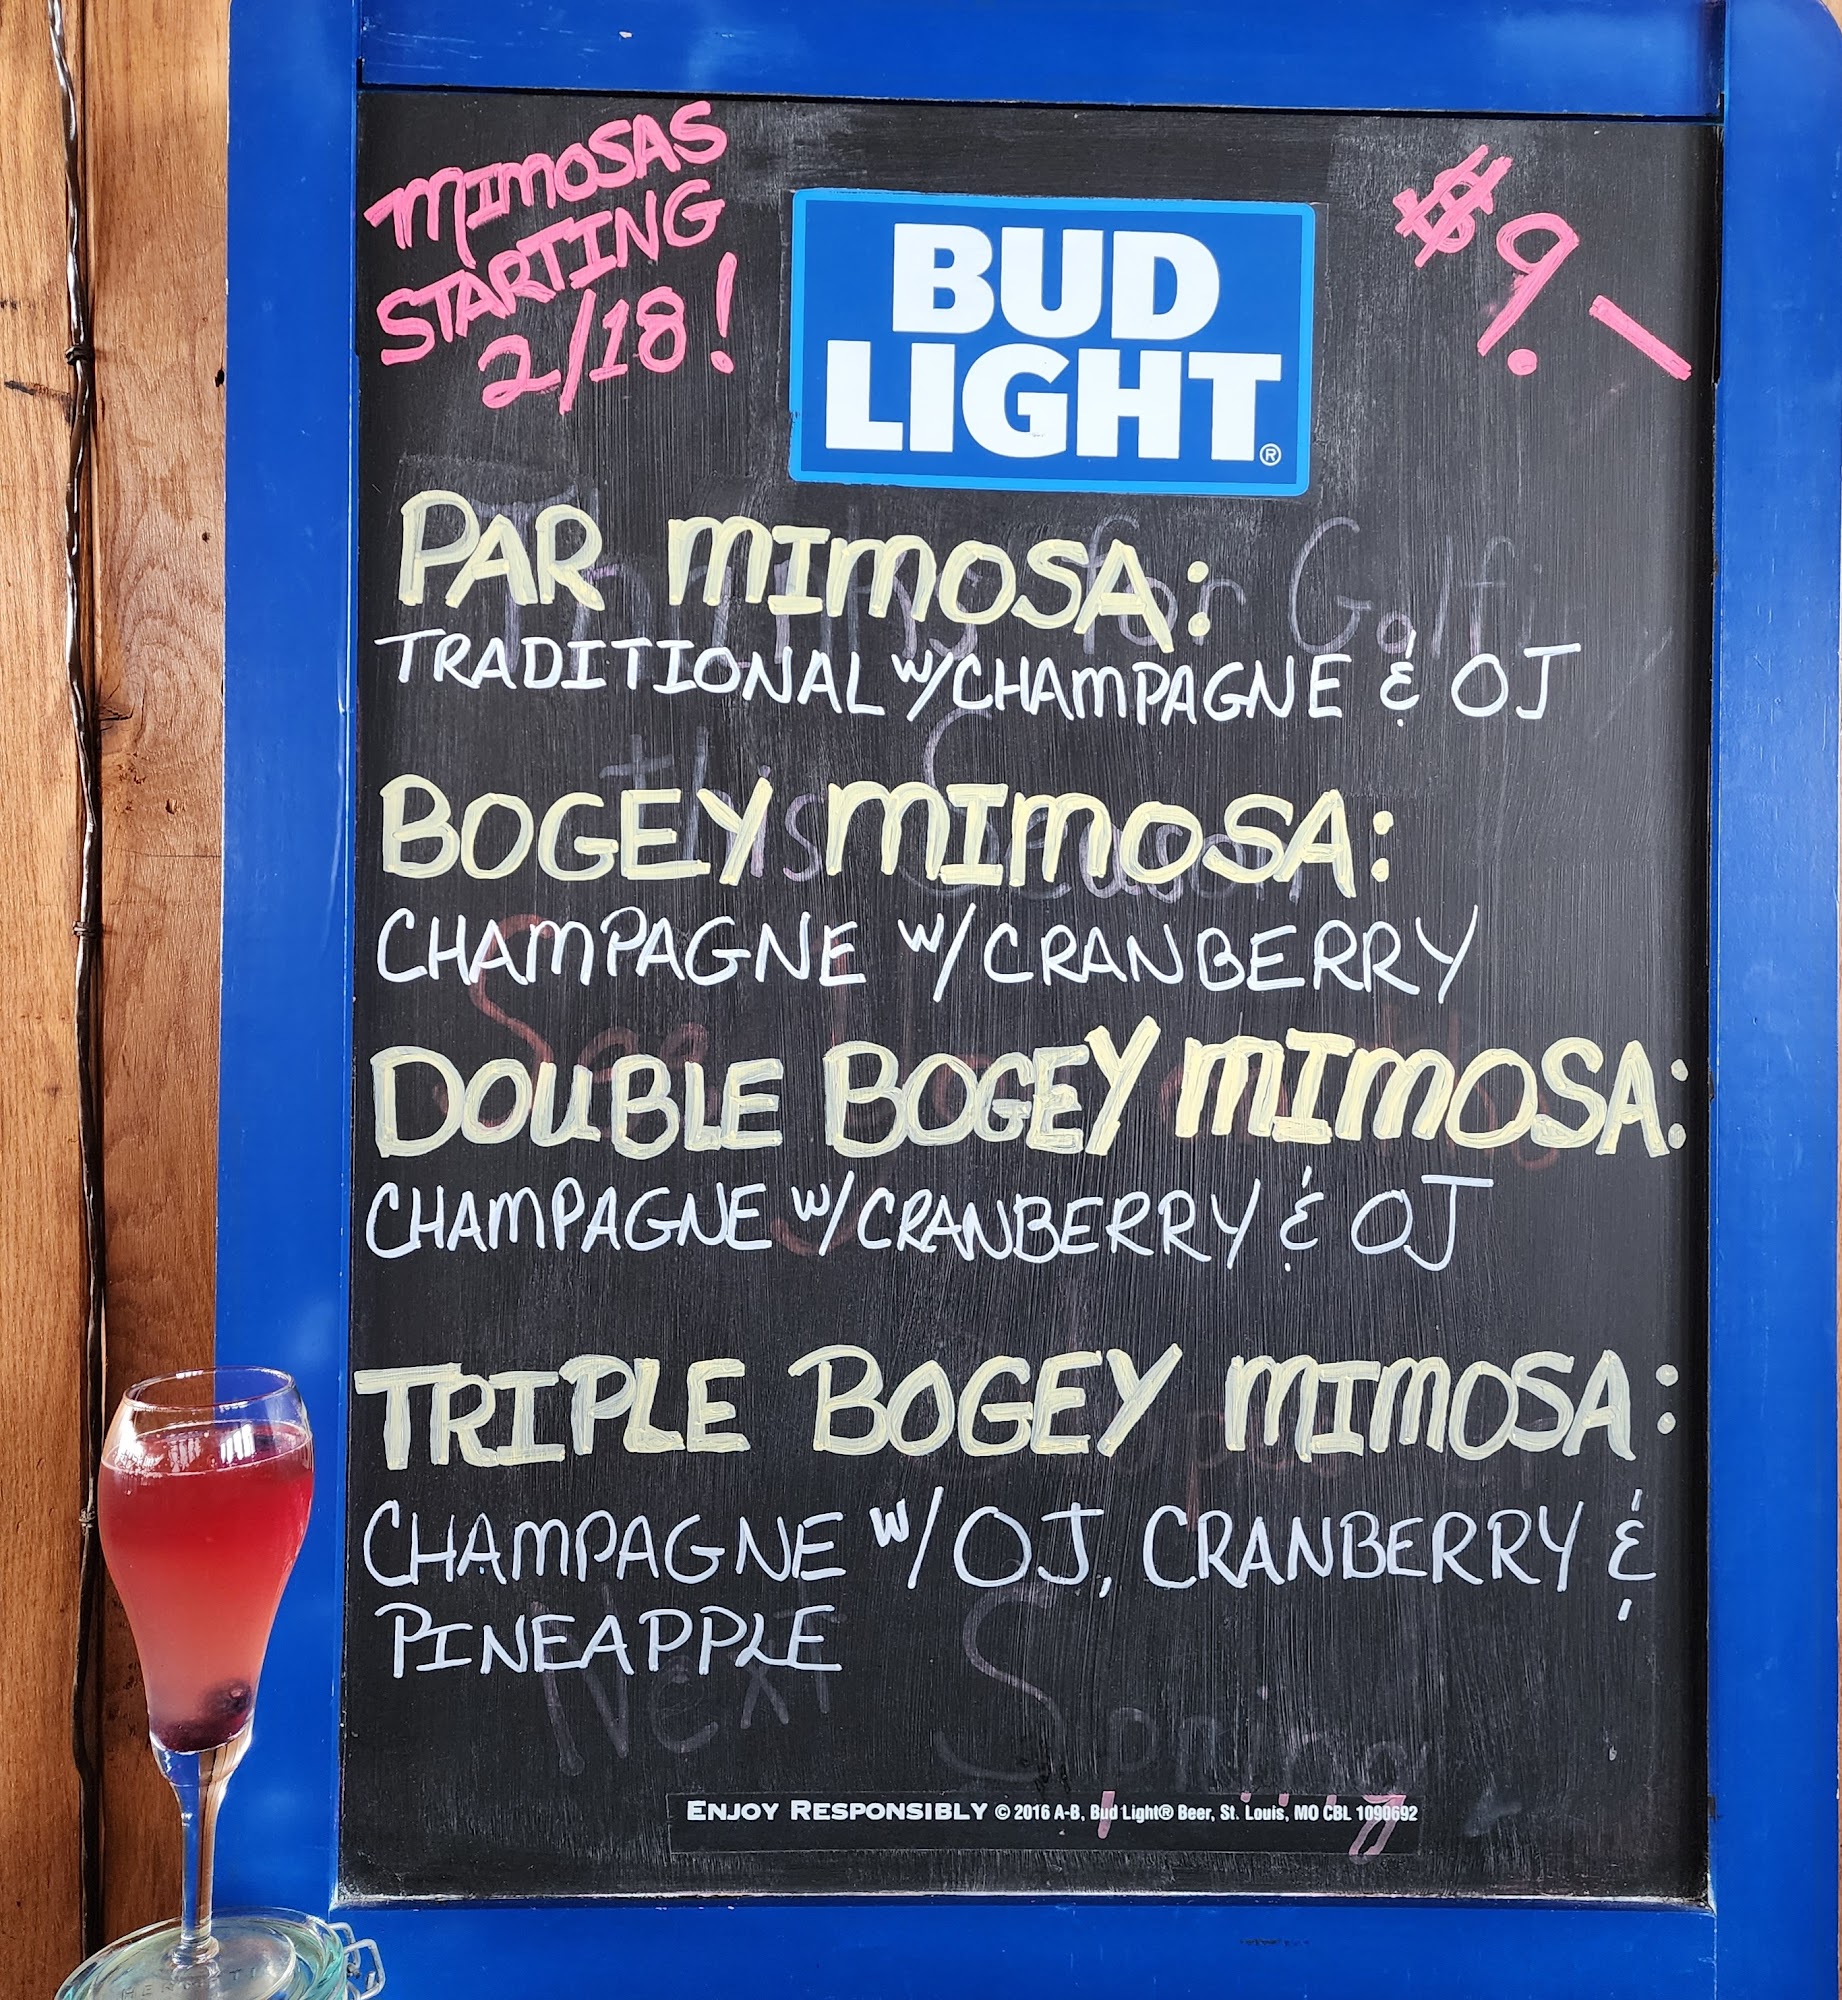 MIMOSAS
STARTING
2/18!
$9.-
BUD
LIGHT®
PAR MIMOSA:
TRADITIONAL W/CHAMPAGNE & OJ
BOGEY MIMOSA:
CHAMPAGNE W/CRANBERRY
DOUBLE BOGEY MIMOSA:
CHAMPAGNE W/CRANBERRY & OJ
TRIPLE BOGEY MIMOSA:
CHAMPAGNE W/OJ, CRANBERRY &
PINEAPPLE
Thanks for Golf
this Season
See
Next Spring
ENJOY RESPONSIBLY © 2016 A-B, Bud Light® Beer, St. Louis, MO CBL 1090692